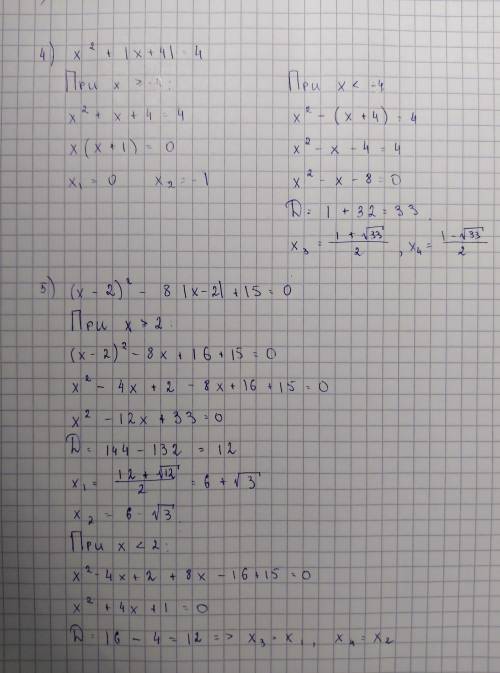 4) x² + |x+4| = 4
При x > -4:
x² + x + 4 = 4
x(x+1) = 0
x₁ = 0 x₂ = -1
При x < -4
x² - (x+4) = 4
x² - x - 4 = 4
x² - x - 8 = 0
D = 1 + 32 = 33
x₃ = (1 + √33)/2, x₄ = (1 - √33)/2
5) (x - 2)² - 8 |x-2| + 15 = 0
При x > 2:
(x-2)² - 8x + 16 + 15 = 0
x² - 4x + 2 - 8x + 16 + 15 = 0
x² - 12x + 33 = 0
D = 144 - 132 = 12
x₁ = (12 + √12)/2 = 6 + √3
x₂ = 6 - √3
При x < 2:
x² - 4x + 2 + 8x - 16 + 15 = 0
x² + 4x + 1 = 0
D = 16 - 4 = 12 => x₃ = x₁, x₄ = x₂